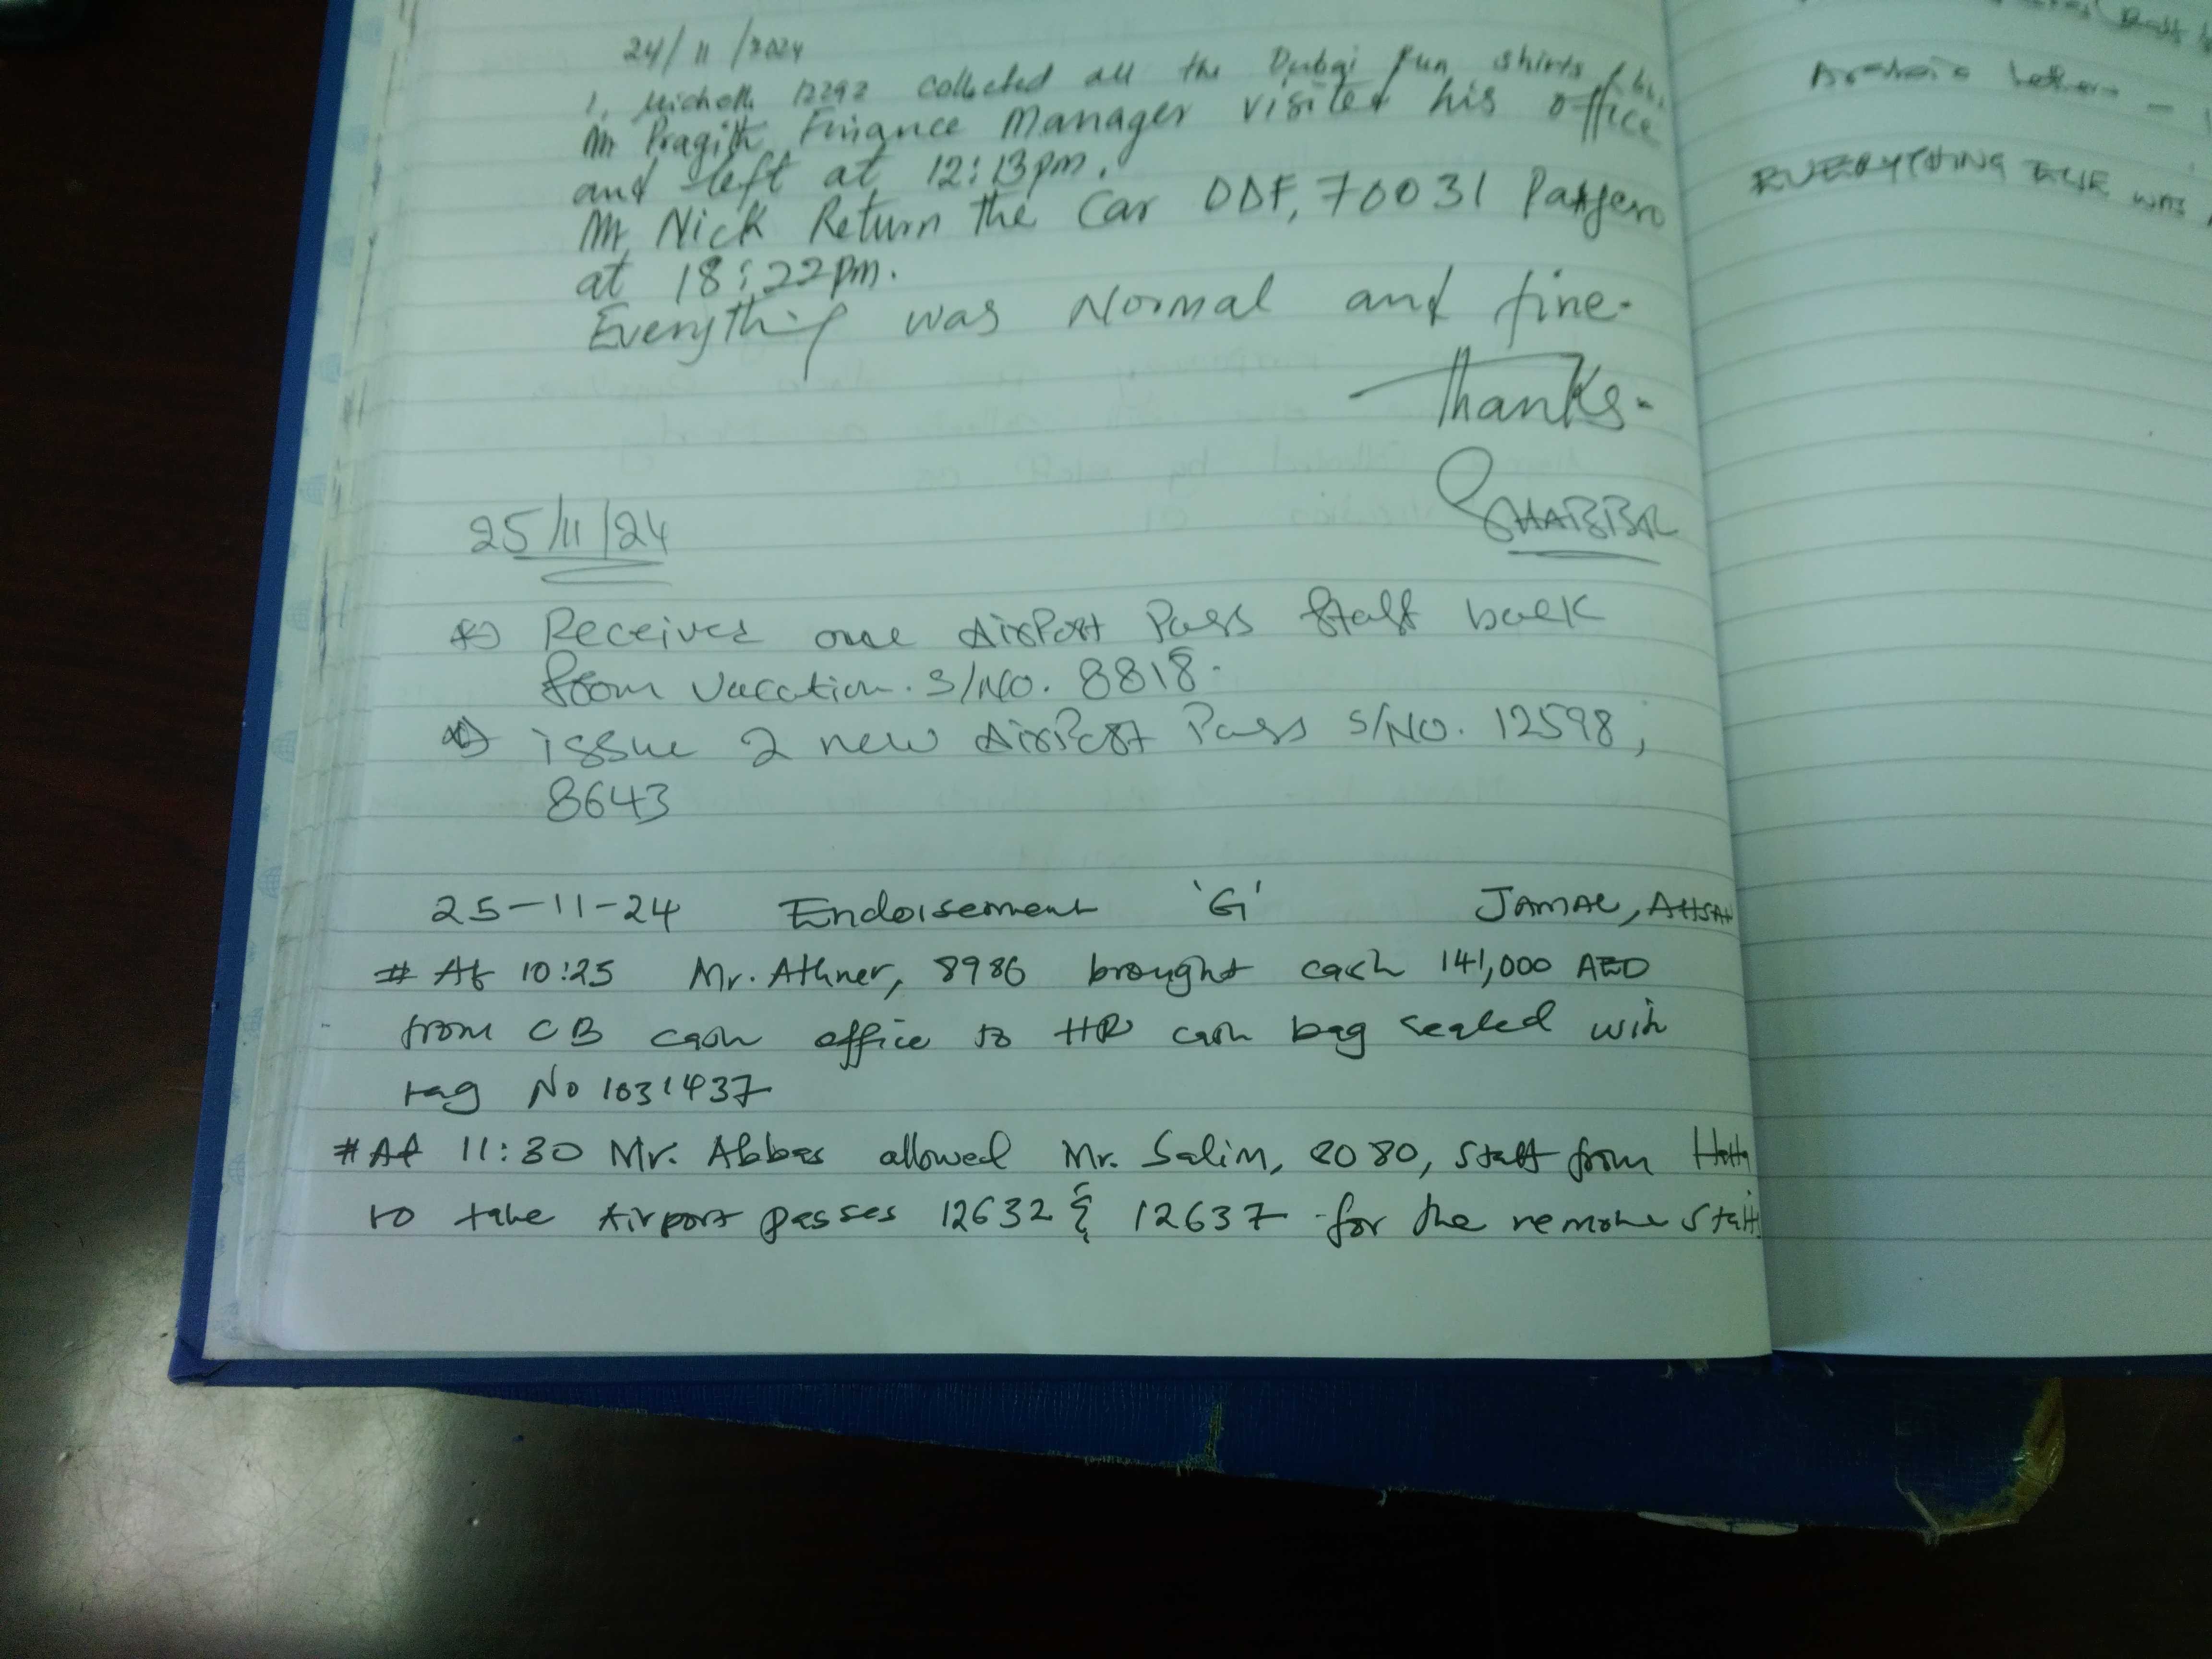 24/11/2024
1. Michelle 12292 collected all the Dubai Run shirts
Mr Pragith Finance Manager visited his office
and left at 12:13pm.
Mr Nick Return the Car DDF, 70031 Pajero
at 18:22pm.
Everything was Normal and fine.
Thanks.
SHABBIR
25/11/24
Received one AirPort Pass Staff back
from vacation. S/NO. 8818.
issue 2 new AirPort Pass S/NO. 12598,
8643
25-11-24 Endorsement 'G' JAMAL, AHSAN
# At 10:25 Mr. Athner, 8986 brought cash 141,000 AED
from CB cash office to HR cash bag sealed with
tag No 1031437
# At 11:30 Mr. Abbas allowed Mr. Salim, 2080, staff from Hatta
to take Airport passes 12632 & 12637 for the remote staff
EVERYTHING ELSE WAS